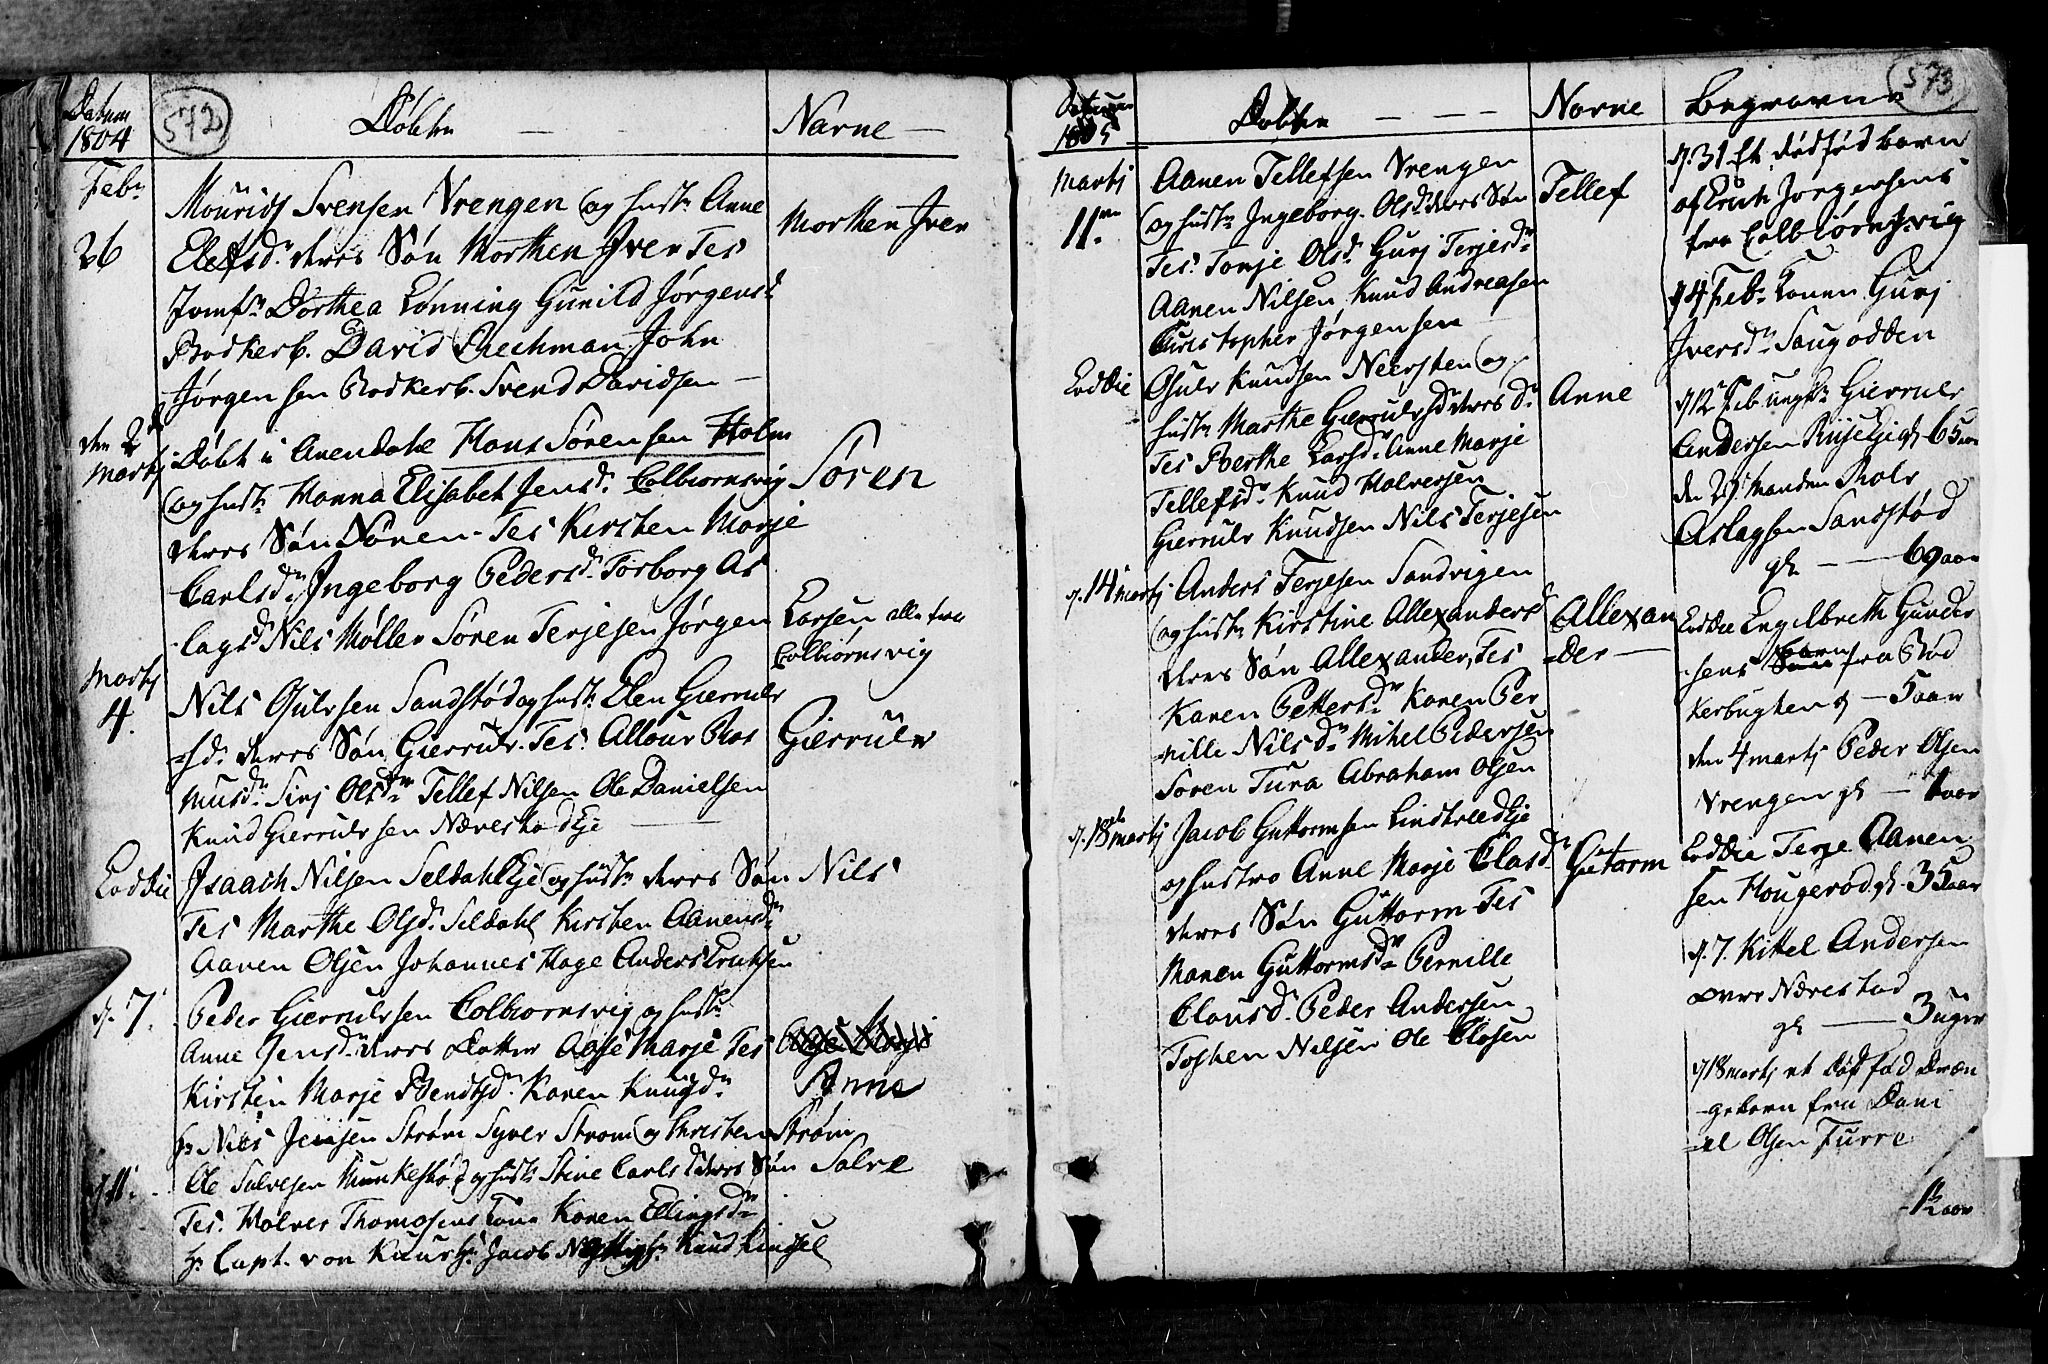 Datum
1804
572
Døbte
Navne
Febr
26
Mouridz Svensen Vrengen og hustr Anne
Elefsdr deres Søn Morthen Iver Tes
Jomfr Dorthea Lønning Gunild Jørgensd
Bodkerb. David Bechman John
Jørgensen Bodkerb. Svend Davidsen
Morthen Iver
den 2
Martj
Døbt i Arendahl Hans Sørensen Holm
og hustr Hanna Elisabet Jensd. Colbiornsvig
deres Søn Søren Tes Kirsten Marje
Carlsdr Ingeborg Pedersd. Torborg As
lagsd Nils Møller Søren Terjesen Jørgen
Søren
Larsen alle fra
Colbiornsvig
Martj
4.
Nils Gulvsen Sandstød og hustr Elen Gierrulv
sd. deres Søn Gierrulv Tes. Allour Ras
musdr Sirj Olsdr Tellef Nilsen Ole Danielsen
Knud Gierrulvsen Nærestad Eje
Gierrulv
Loddie
Isaach Nilsen Seldahl Eje og hustr deres Søn
Tes Marthe Olsd. Seldahl Kirsten Aanensdr
Aanen Olsen Johannes Hage Anders
Nils
d. 7.
Peder Gierrulvsen Colbiornsvig og hustr
Anne Jensdr deres Dotter Aase Marje Tes
Kirsten Marje Bendtsd. Karen Knudsdr
hr Nils Jensen Strøm Syver Strøm og Christen Strøm
Anne
d. 11.
Ole Salvesen og hustr Stine Carlsd deres Søn
Tes. Halvor Thomasens Kone Karen Ellingsdr
hr Capt. von hr Jacob hr Knud
Salve
573
Datum
1805
Døbte
Navne
Begravne
Martj
11te
Aanen Tellefsen Vrengen
og hustr Ingeborg Olsdr deres Søn
Tes. Tonje Olsd. Gurj Terjesdr
Aanen Nilsen Knud Andreasen
Christopher Jørgensen
Tellef
Loddie
Gulv Knudsen Neersten og
hustr Marthe Gierrulvsd deres Dr
Tes Berthe Larsdr Anne Marje
Tellefsdr Knud Halvorsen
Gierrulv Knudsen Nils Terjesen
Anne
d. 14 martj
Anders Terjesen Sandvigen
og hustr Kirstine Allexandersd
deres Søn Allexander, Tes
Karen Pettersdr Karen Per
nille Nilsdr Mikel Pedersen
Soren Tura Abraham Olsen
Allexan
=der
d. 18 martj
Jacob Guttormsen Lindtved Eje
og hustro Anne Marje Clasdr
deres Søn Guttorm Tes
Maren Guttormsdr Pernille
Clausd. Peder Andersen
Nilsen Ole Clasen
Gutorm
d. 31 Et dødfød barn
af Jørgensens
fra Colbiørnsvig
d 4 Febr Konen Gurj
Iversdr Saugodden
d 12 Feb ungk Gierrulv
Andersen gl 65 aar
den 29 Manden Rolv
Aslagsen Sandstød
gl — 69 aar
Loddie Engelbreth Gunder
sens barn fra Bød
kerbugten gl — 5 aar
den 4 martj Peder Olsen
Vrengen gl — 1 aar
Loddie Terje Aanen
sen Hougerød gl 35 aar
d. 7. Kittel Andersen
Nærestad
gl — 3 uger
d 18 martj et dødfød
barn fra Dani
=el Olsen Furre